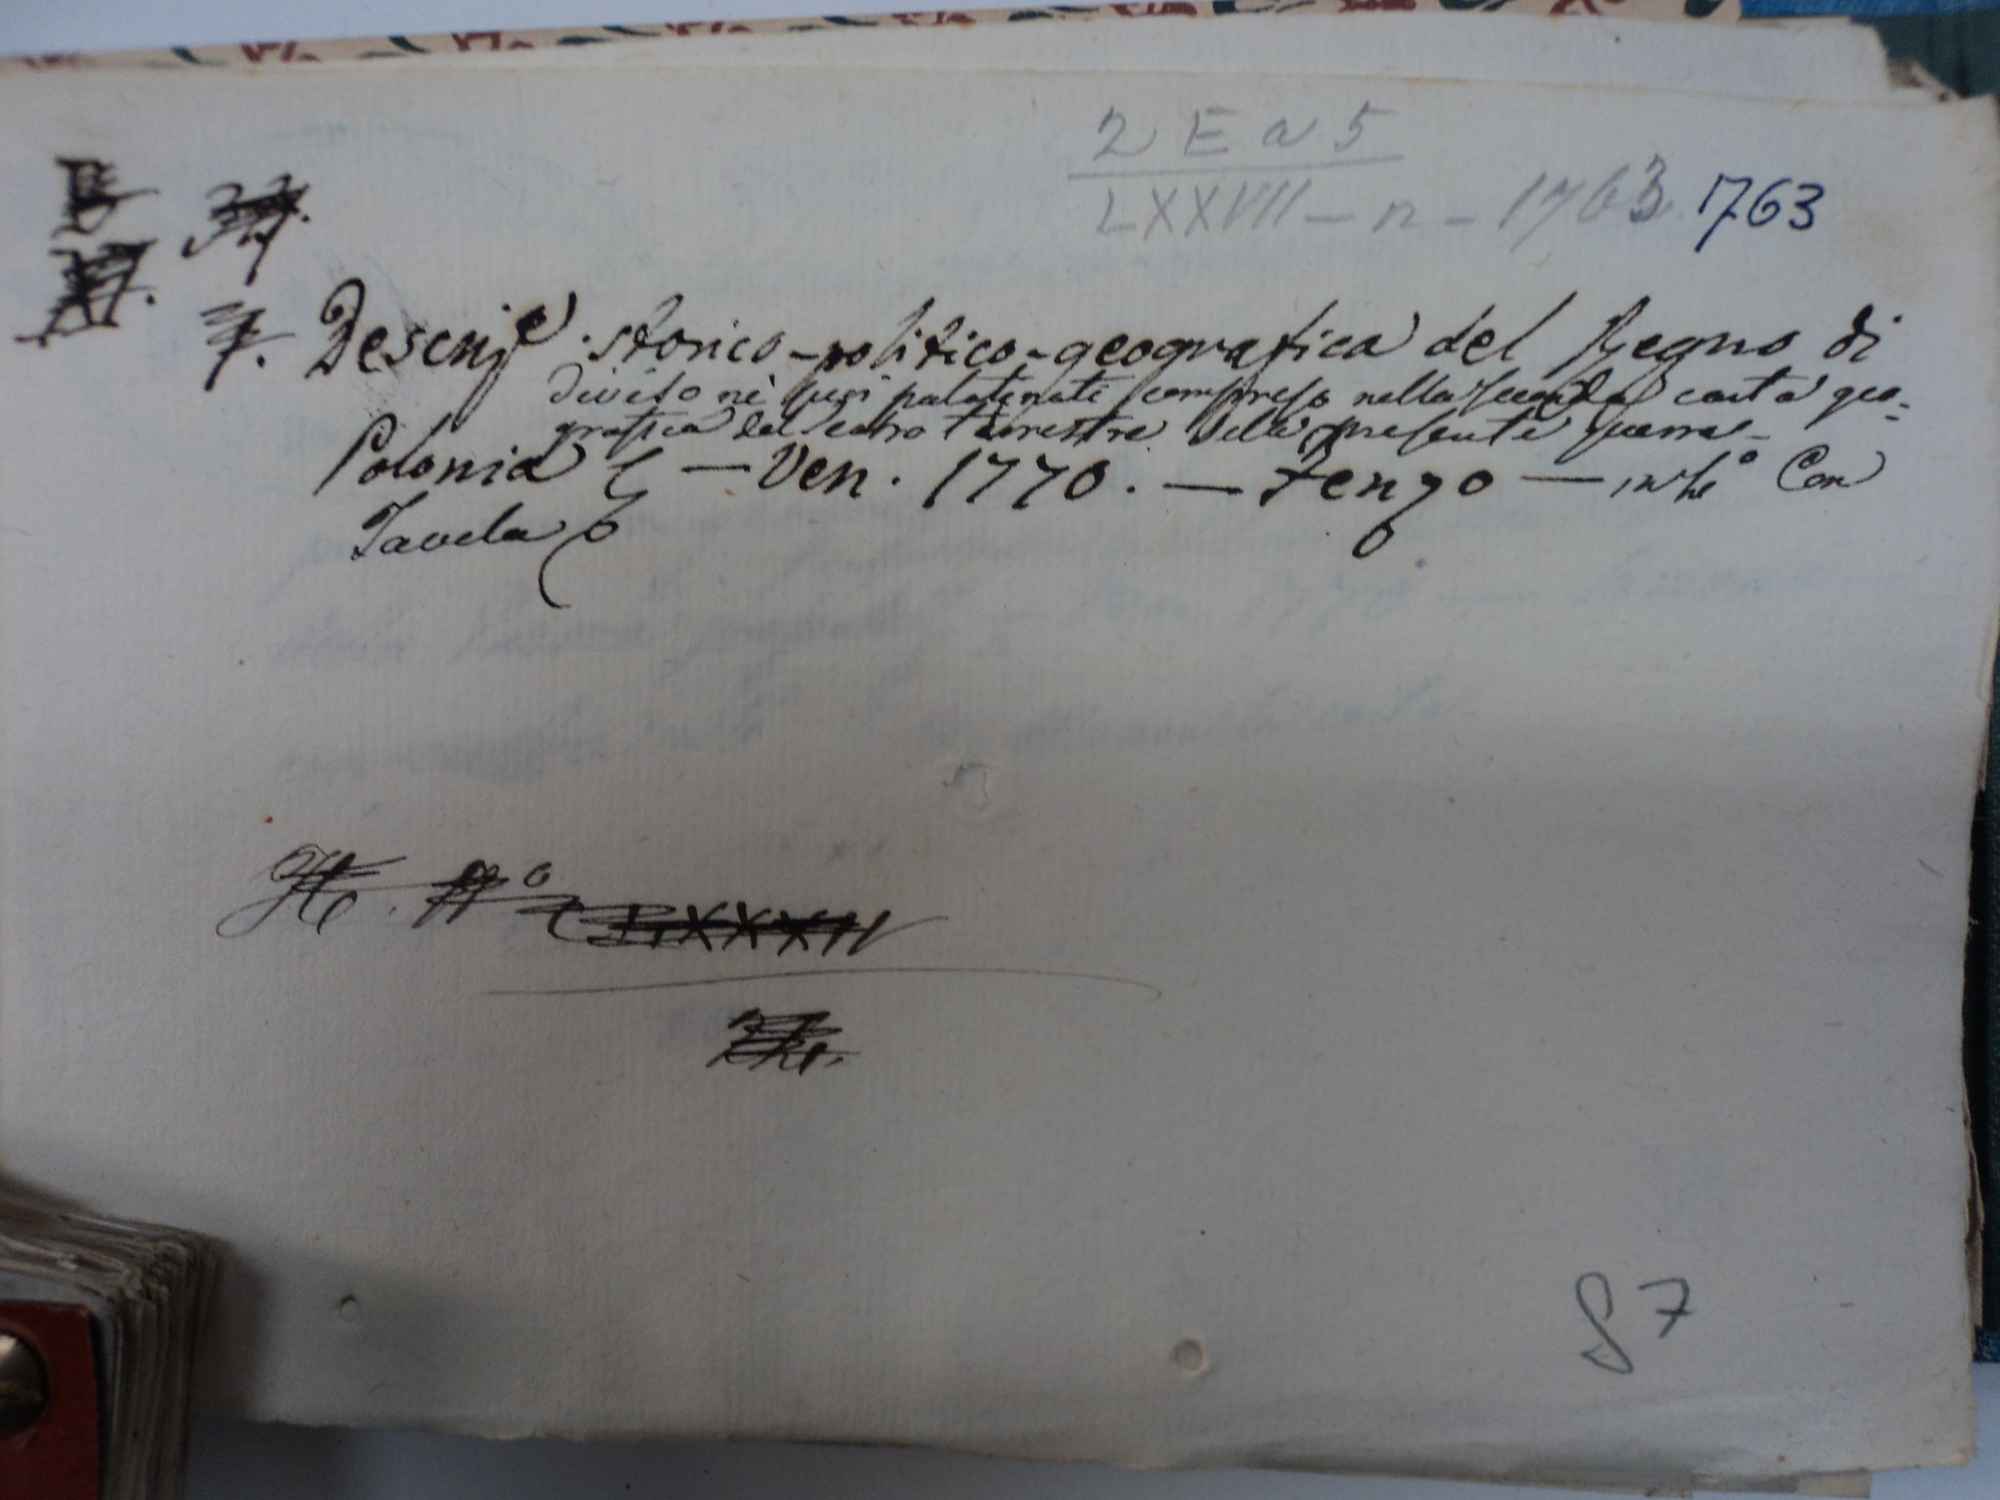 2 E a 5
LXXVII - n - 1763 1763
B 37.
XI.
7. Descriz.e storico-politico-geografica del Regno di
diviso nè suoi palatinati compreso nella seconda carta geo=
grafica del teatro terrestre della presente guerra-
Polonia — Ven. 1770. — Fenzo — in 4.º Con
Tavola
H. N.º LXXXII
87